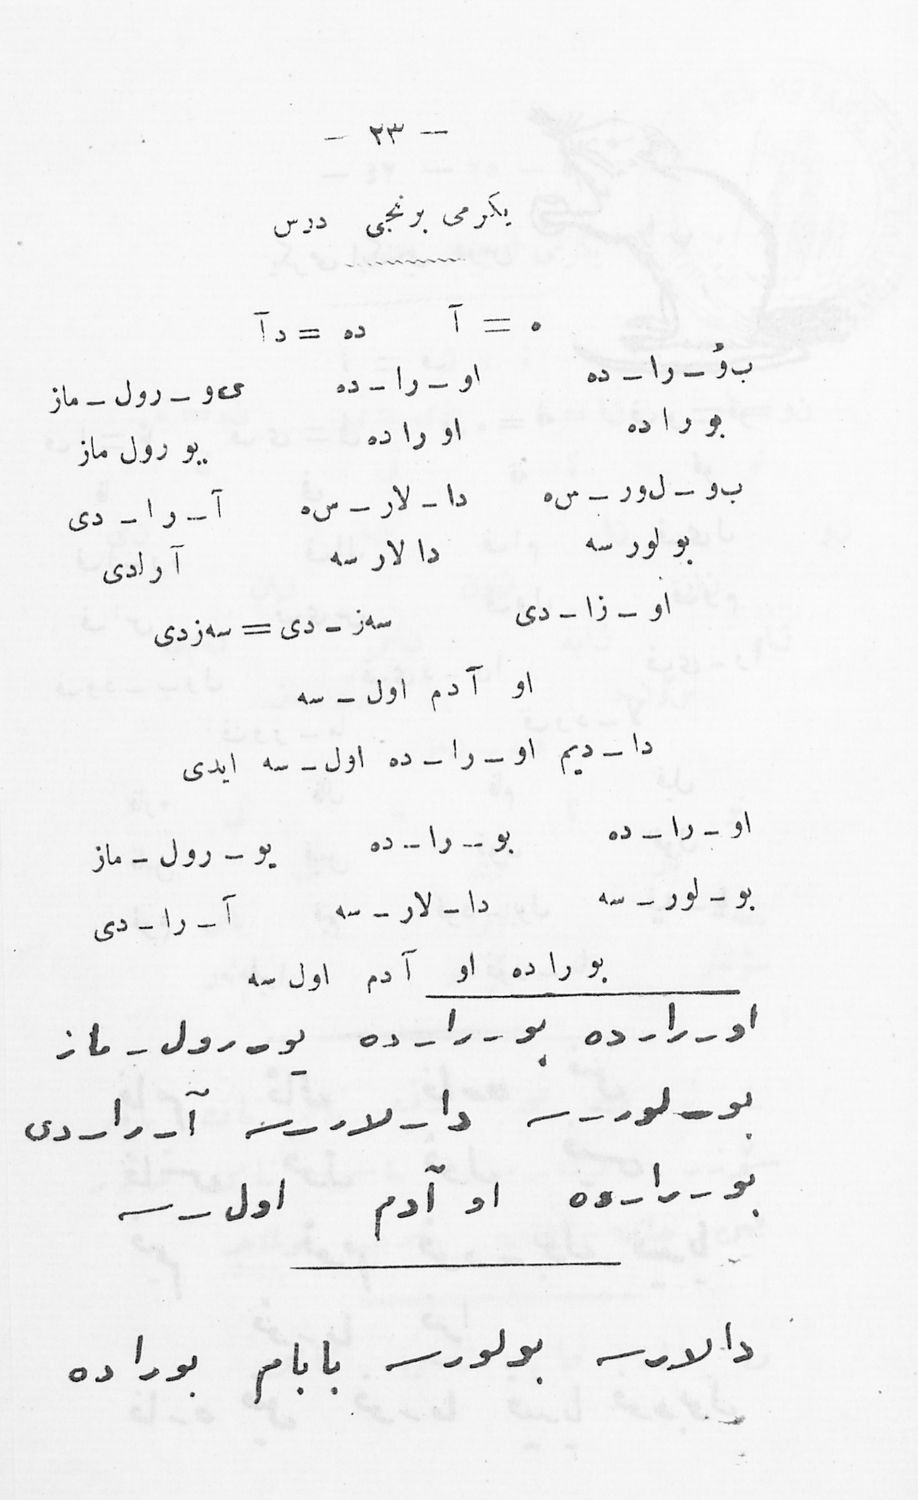 — ٢٣ —
يكرمى برنجى درس
ه = آ ده = دآ
ب‍ وُ ـ را ـ ده او ـ را ـ ده ى‍ و ـ رول ـ ماز
بو را ده او را ده يو رول ماز
ب‍ و ـ ل‍ ور ـ س‍ ه دا ـ لار ـ س‍ ه آ ـ را ـ دى
بو لور سه دا لار سه آ رادى
او ـ زا ـ دى سه‌ز ـ دى = سه‌زدى
او آ دم اول ـ سه
دا ـ ديم او ـ را ـ ده اول ـ سه ايدى
او ـ را ـ ده بو ـ را ـ ده يو ـ رول ـ ماز
بو ـ لور ـ سه دا ـ لار ـ سه آ ـ را ـ دى
بو را ده او آ دم اول سه
او ـ را ـ ده بو ـ را ـ ده يو ـ رول ـ ماز
بو ـ لور ـ سه دا ـ لار ـ سه آ ـ را ـ دى
بو ـ را ـ ده او آدم اول ـ سه
دالارسه بولورسه بابام بوراده